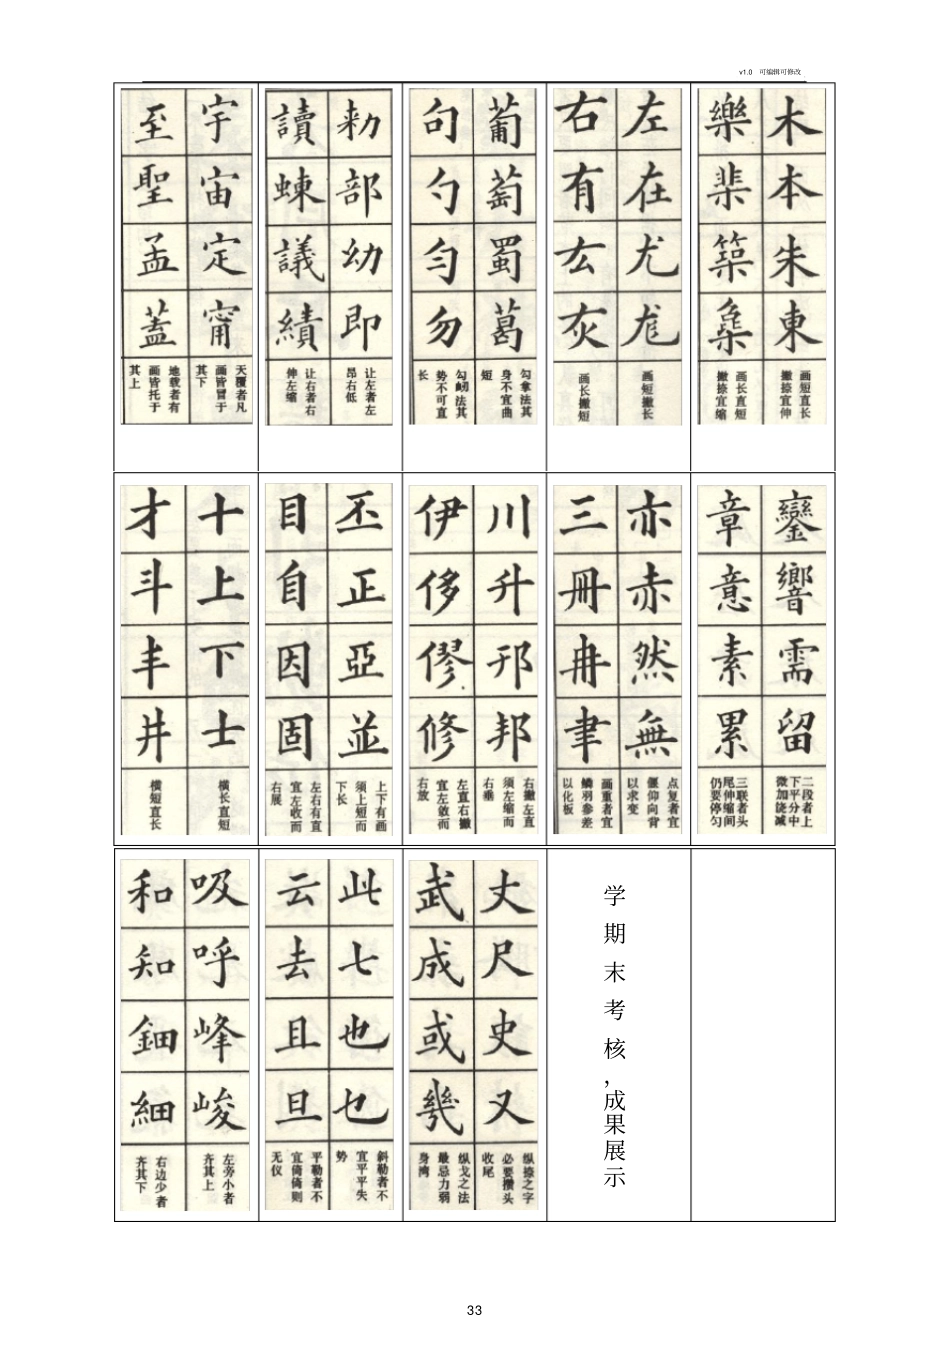 v1.0 可编辑可修改
宇宙定甯
天覆者凡
画皆冒于
其下
至聖孟蓋
地载者有
画皆托于
其上
勑部幼即
让左者左
昂右低
讀蝀議績
让右者右
伸左缩
葡萄蜀葛
勾拿法其
身不宜曲
短
句勺匀勿
勾法其
势不可直
长
左在尤尨
画短撇长
右有厷灰
画长撇短
木本朱東
画短直长
撇捺宜伸
樂棐築
画长直短
撇捺宜缩
十上下士
横长直短
才斗丰井
横短直长
丕正亞並
上下有画
须上短而
下长
目自因固
左右有直
宜左收而
右展
川升邗邦
右撇左直
须左缩而
右垂
伊侈僇修
左直右撇
宜左敛而
右放
亦赤然無
点复者宜
偃仰向背
以求变
三冊冉聿
画重者宜
鳞羽参差
以化板
鑾響需留
二段者上
下平分中
微加饶减
章意素累
三联者头
尾伸缩间
仍要停匀
吸呼峰峻
左旁小者
齐其上
和知鈿細
右边少者
齐其下
此七也乜
斜勒者不
宜平平失
势
云去且旦
平勒者不
宜倚倚则
无仪
丈尺史又
纵捺之字
必要攒头
收尾
武成或幾
纵戈之法
最忌力弱
身湾
学期末考核,成果展示
33